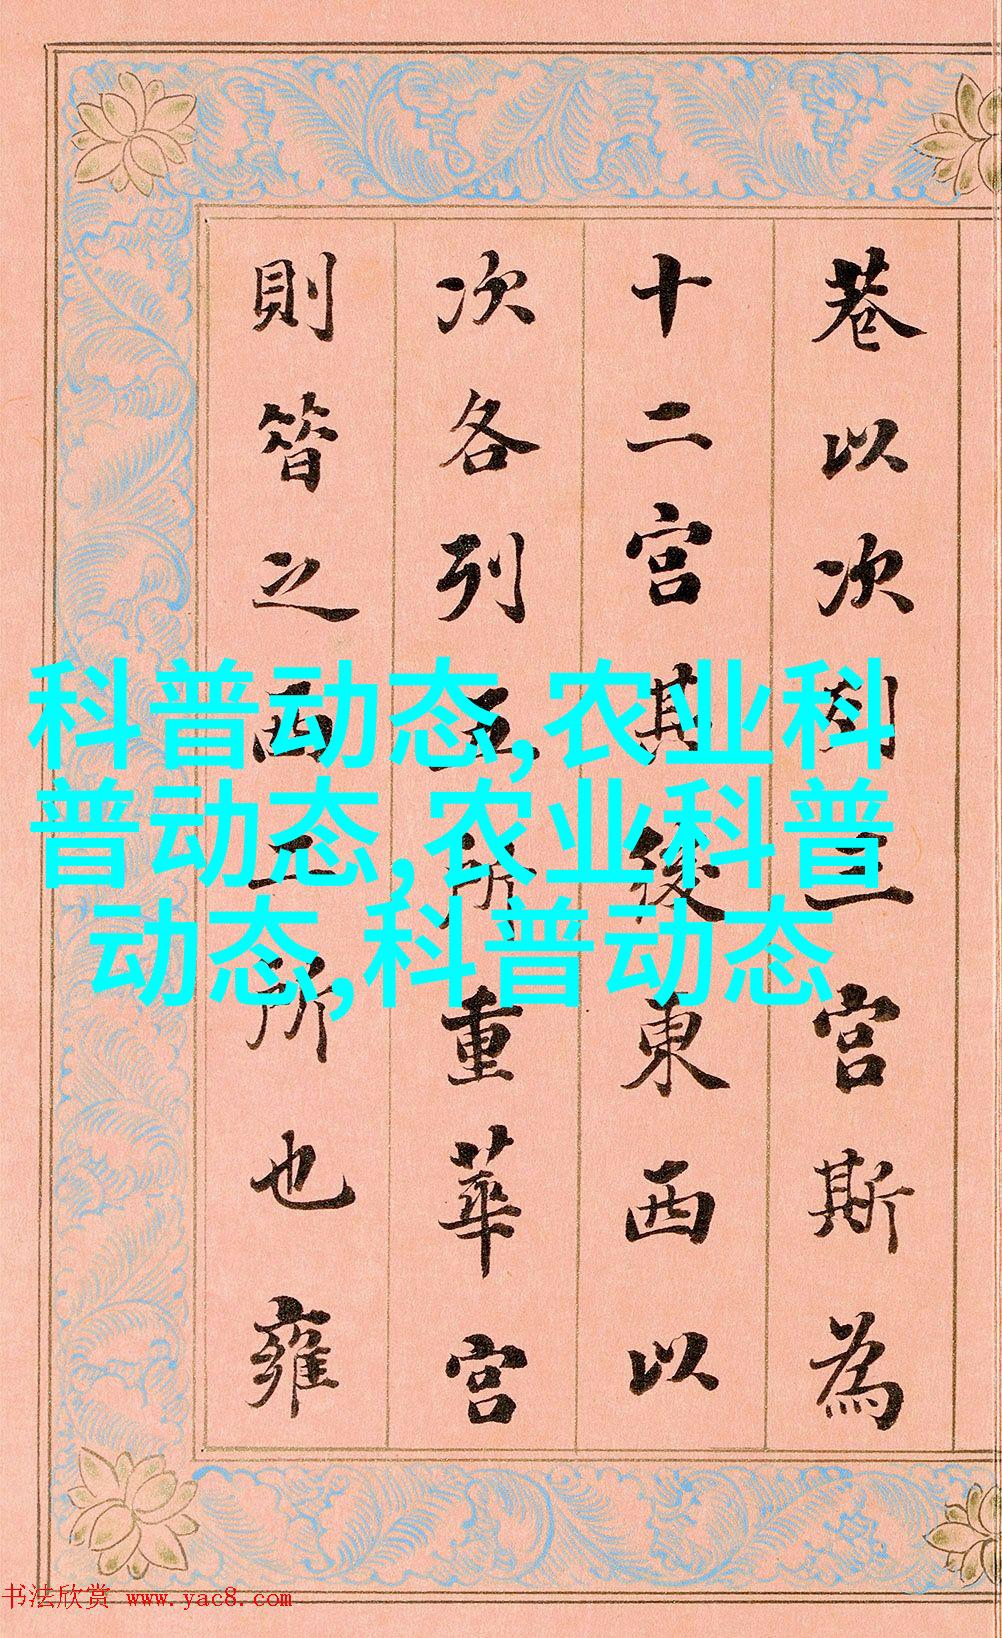 巷以次列三宮斯為
十二宮其後東西以
次各列五所重華宮
則昔之西二所也雍
科普动态,农业科
普动态,农业科普
动态,科普动态
书法欣赏 www.yac8.com